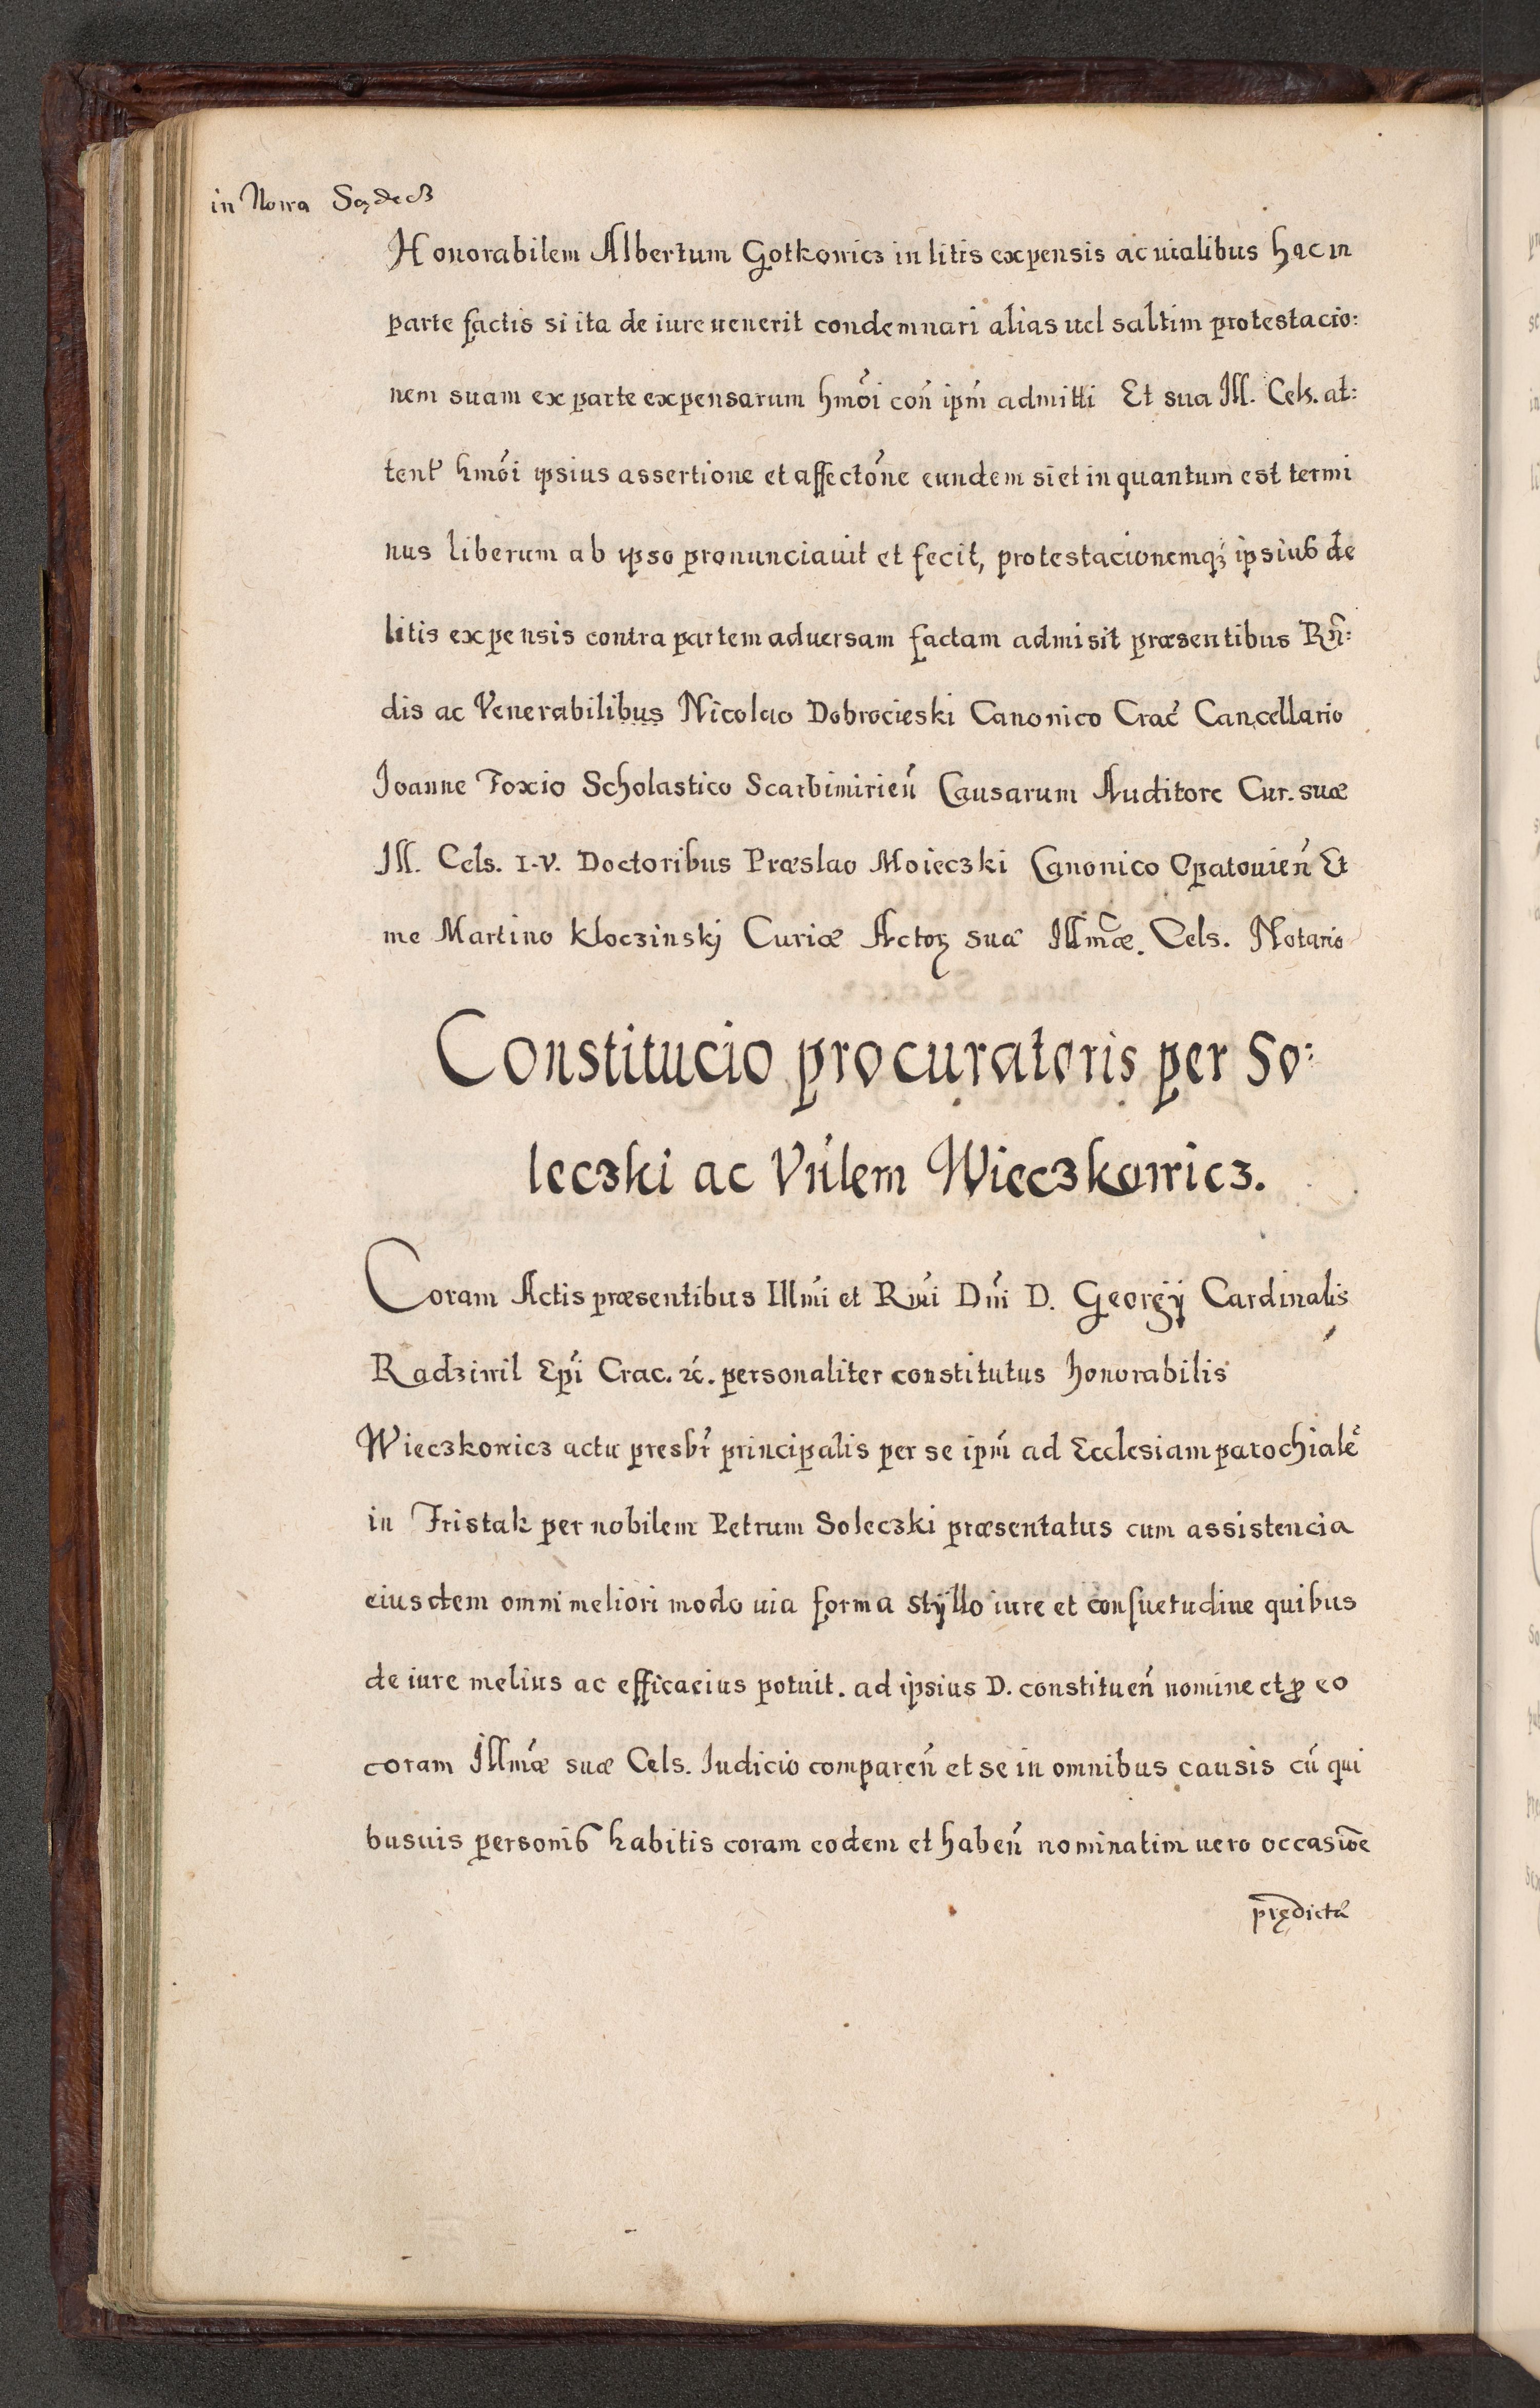 in Nowa Sądecz
Honorabilem Albertum Gotkowicz in litis expensis ac uialibus hac in
parte factis si ita de iure uenerit condemnari alias uel saltim protestacio:
nem suam ex parte expensarum hmōi coñ ipm̃ admitti Et sua Ill. Cels. at:
tent' hmōi ipsius assertione et affectōne eundem si et in quantum est termi
nus liberum ab ipso pronunciauit et fecit, protestacionemqꝫ ipsius de
litis expensis contra partem aduersam factam admisit præsentibus Rñ:
dis ac Venerabilibus Nicolao Dobrocieski Canonico Crac̃ Cancellario
Joanne Foxio Scholastico Scarbimirieñ Causarum Auditore Cur. suæ
Ill. Cels. I.V. Doctoribus Præslao Moieczki Canonico Opatouieñ Et
me Martino Kloczinskj Curiæ Actoꝝ suæ Illm̃æ. Cels. Notario
Constitucio procuratoris per So:
leczki ac Vn̄lem Wieczkowicz.
Coram Actis præsentibus Illm̃i et Rm̃i Dñi D. Georgÿ Cardinalis
Radziwil Ep̃i Crac. ꝛc̃. personaliter constitutus honorabilis
Wieczkowicz actu presbr̃ principalis per se ipm̃ ad Ecclesiam parochialẽ
in Fristak per nobilem Petrum Soleczki præsentatus cum assistencia
eiusdem omni meliori modo uia forma stÿllo iure et consuetudine quibus
de iure melius ac efficacius potuit. ad ipsius D. constitueñ nomine et ꝓ eo
coram Illm̃æ suæ Cels. Iudicio compareñ et se in omnibus causis cũ qui
busuis personis habitis coram eodem et habeñ nominatim uero occasiõe
prędictã